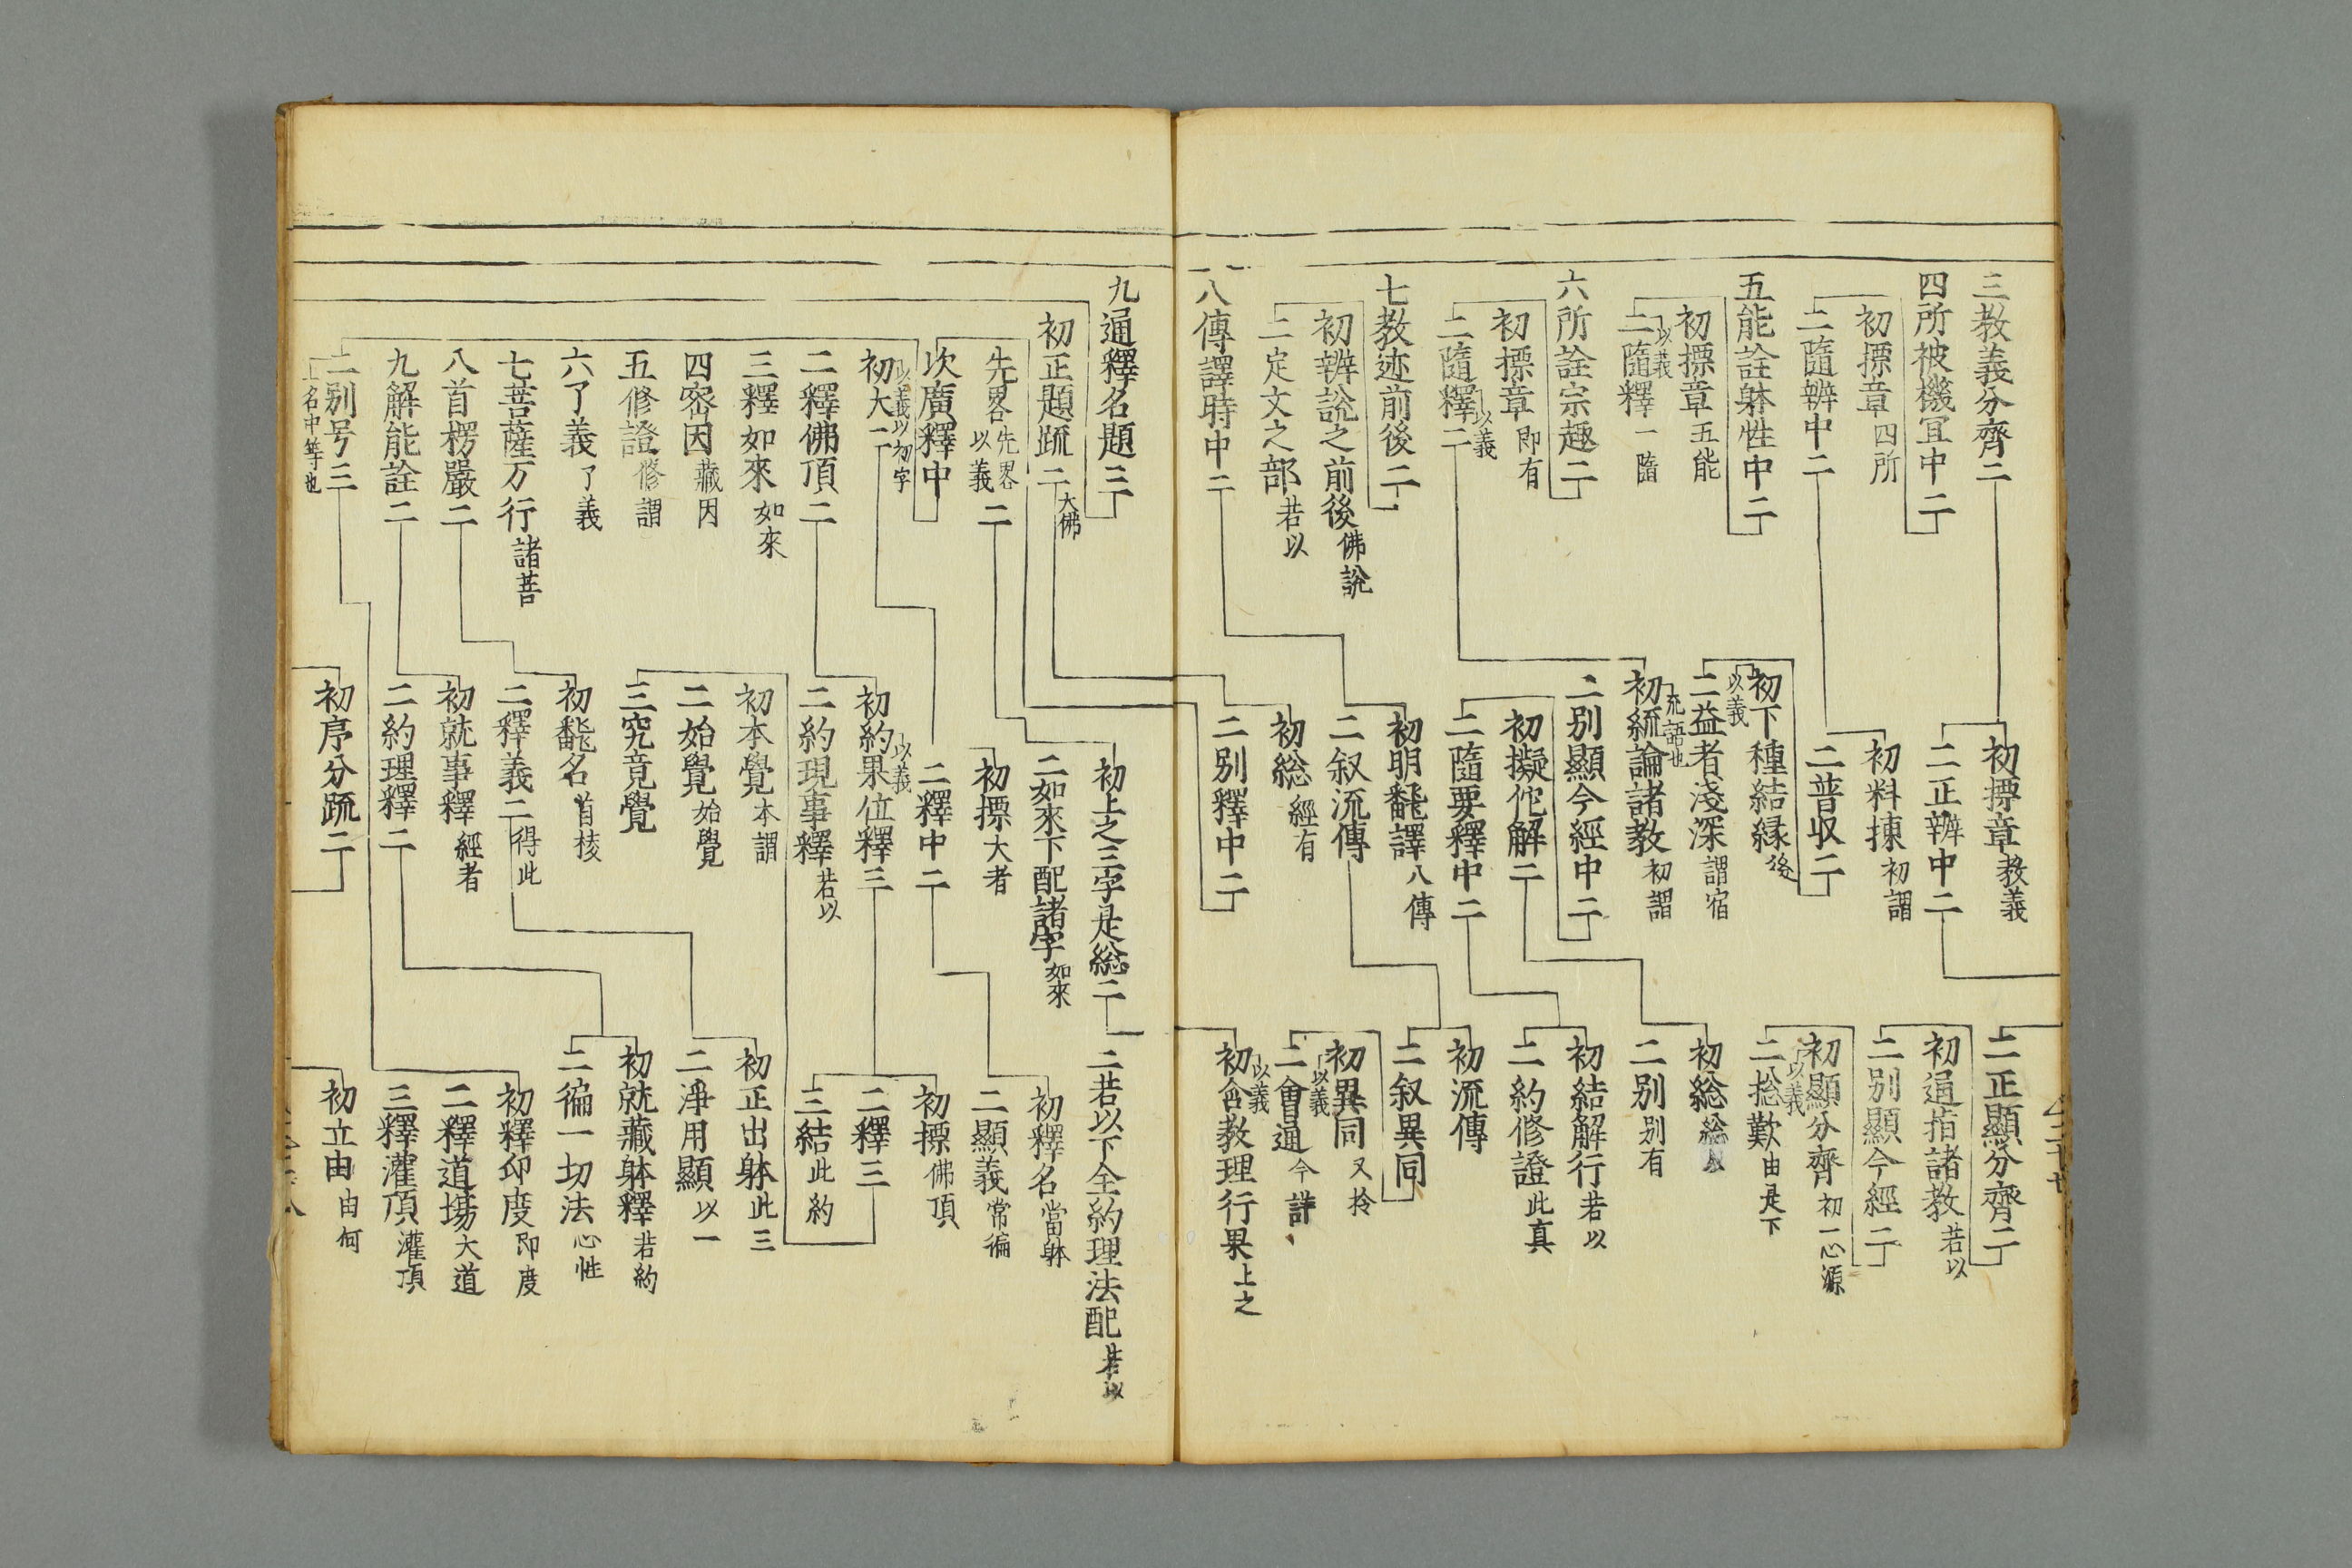 三教義分齊二
四所被機宜中二
初摽章四所
二隨辨中二
五能詮躰性中二
初摽章五能
以義
二隨釋一隨
六所詮宗趣二
初摽章即有
以義
二隨釋二
七教迹前後二
初辨說之前後佛說
二定文之部若以
八傳譯時中二
初摽章教義
二正辨中二
初料揀初謂
二普収二
初下種結縁後
以義
二益者淺深謂宿
初統論諸教初謂
二別顯今經中二
初擬佗解二
二隨要釋中二
初明飜譯八傳
二叙流傳
初総經有
二別釋中二
二正顯分齊二
初通指諸教若以
二別顯今經二
初顯分齊初一心源
以義
二捴歎由是下
初総総
二別別有
初結解行若以
二約修證此真
初流傳
二叙異同
初異同又拎
以義
二會通今詳
以義
初含教理行果上之
九通釋名題三
初正題䟽二大佛
先畧先畧以義二
次廣釋中
以義以初字
初大二
二釋佛頂二
三釋如來如來
四密因藏因
五修證修謂
六了義了義
七菩薩万行諸菩
八首楞嚴二
九解能詮二
二別号三
上名中等也
初上之三字是総二
二如來下配諸字如來
初摽大者
二釋中二
以義
初約果位釋三
二約現事釋若以
初本覺本謂
二始覺始覺
三究竟覺
初飜名首棱
二釋義二得此
初就事釋經者
二約理釋二
初序分䟽二
二若以下全約理法配若以
初釋名當躰
二顯義常徧
初摽佛頂
二釋三
三結此約
初正出躰此三
二淨用顯以一
初就藏躰釋若約
二徧一切法心性
初釋印度即度
二釋道場大道
三釋灌頂灌頂
初立由由何